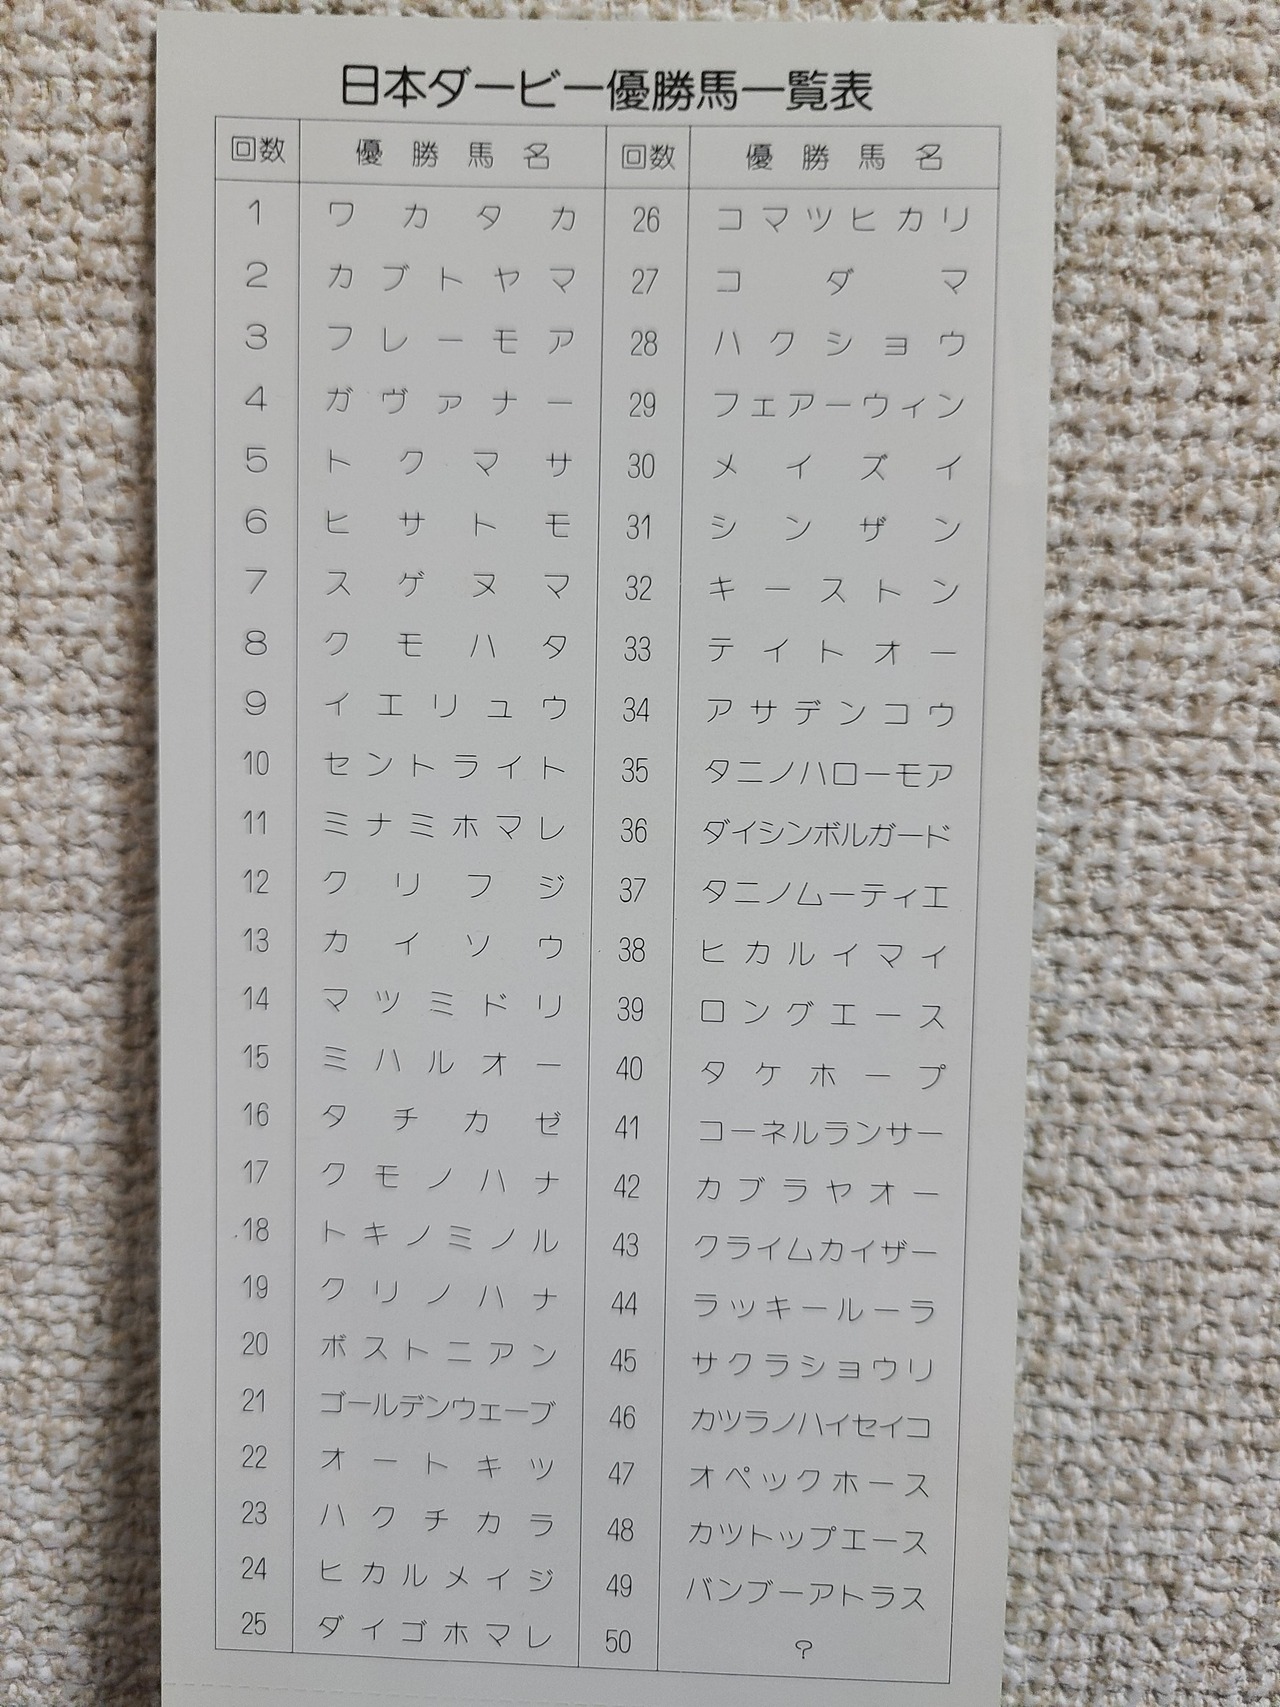 日本ダービー優勝馬一覧表
回数 優勝馬名 回数 優勝馬名
1 ワカタカ 26 コマツヒカリ
2 カブトヤマ 27 コダマ
3 フレーモア 28 ハクショウ
4 ガヴァナー 29 フェアーウィン
5 トクマサ 30 メイズイ
6 ヒサトモ 31 シンザン
7 スゲヌマ 32 キーストン
8 クモハタ 33 テイトオー
9 イエリュウ 34 アサデンコウ
10 セントライト 35 タニノハローモア
11 ミナミホマレ 36 ダイシンボルガード
12 クリフジ 37 タニノムーティエ
13 カイソウ 38 ヒカルイマイ
14 マツミドリ 39 ロングエース
15 ミハルオー 40 タケホープ
16 タチカゼ 41 コーネルランサー
17 クモノハナ 42 カブラヤオー
18 トキノミノル 43 クライムカイザー
19 クリノハナ 44 ラッキールーラ
20 ボストニアン 45 サクラショウリ
21 ゴールデンウェーブ 46 カツラノハイセイコ
22 オートキツ 47 オペックホース
23 ハクチカラ 48 カツトップエース
24 ヒカルメイジ 49 バンブーアトラス
25 ダイゴホマレ 50 ?